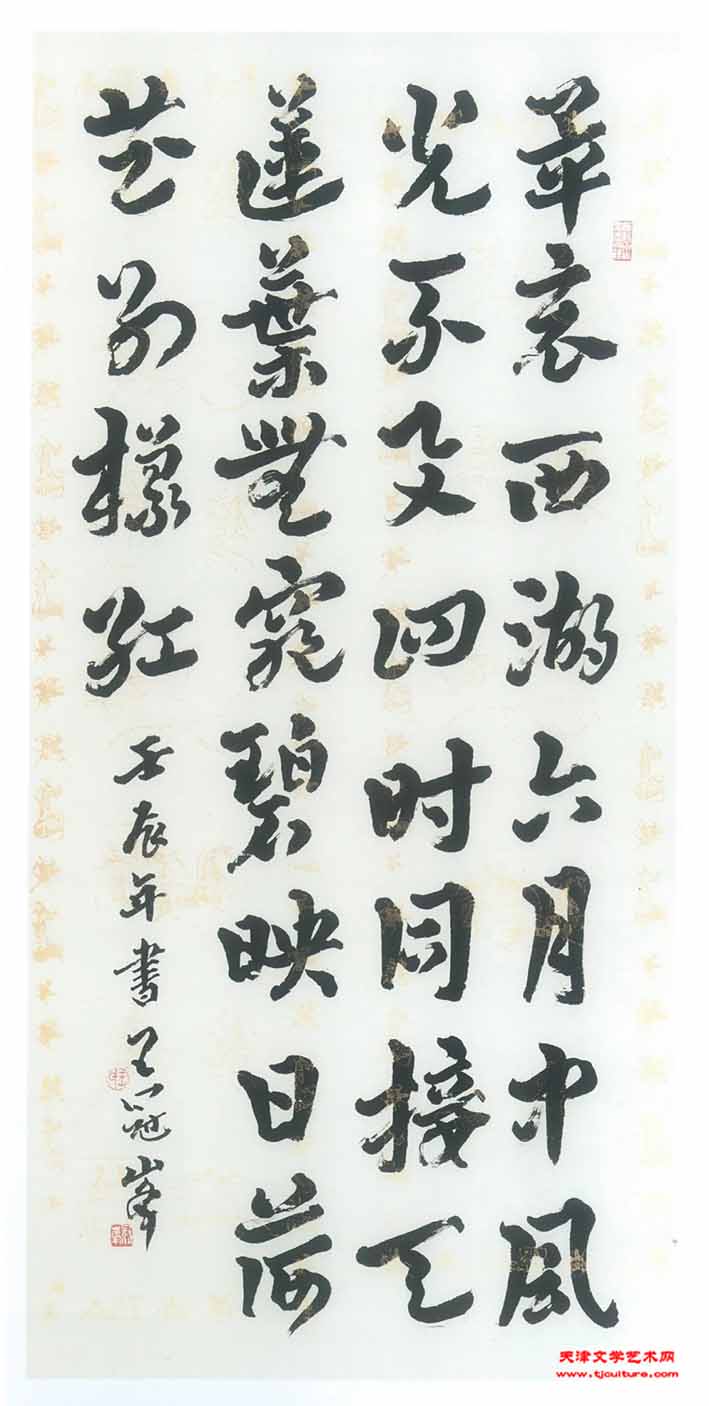 畢竟西湖六月中風
光不與四时同接天
蓮葉無窮碧映日荷
花别樣紅
壬辰年書王冠峯
天津文学艺术网
www.tjculture.com